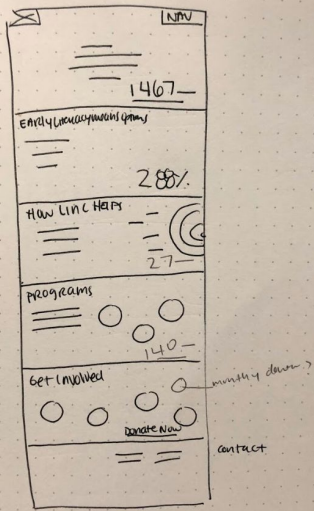 NAV
1467
Early Literacy means options
288%
How LINC Helps
27
Programs
140
Get Involved
monthly donor?
Donate Now
contact